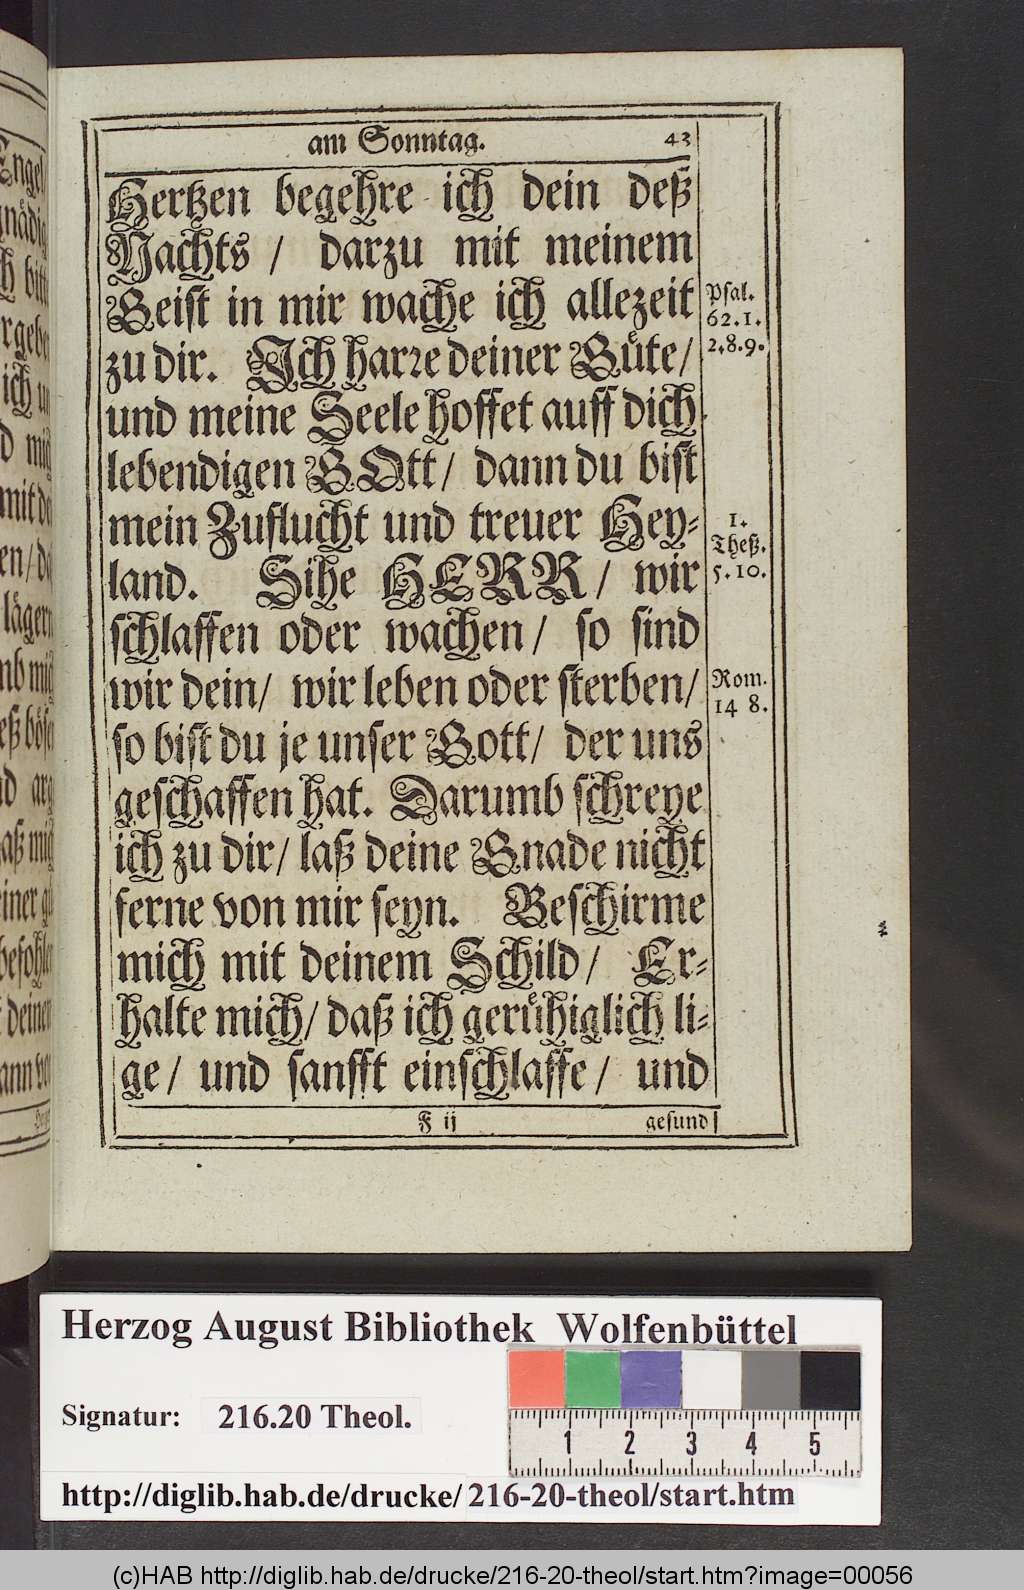 am Sonntag. 43
Hertzen begehre ich dein deß
Nachts / darzu mit meinem
Geist in mir wache ich allezeit
zu dir. Ich harre deiner Güte /
und meine Seele hoffet auff dich
lebendigen GOtt / dann du bist
mein Zuflucht und treuer Hey-
land. Sihe HERR / wir
schlaffen oder wachen / so sind
wir dein / wir leben oder sterben /
so bist du je unser Gott / der uns
geschaffen hat. Darumb schreye
ich zu dir / laß deine Gnade nicht
ferne von mir seyn. Beschirme
mich mit deinem Schild / Er-
halte mich / daß ich gerühiglich li-
ge / und sanfft einschlaffe / und
F ij gesund
Psal.
62.1.
2.8.9.
1.
Theß.
5.10.
Rom.
14 8.
Herzog August Bibliothek Wolfenbüttel
Signatur: 216.20 Theol.
1 2 3 4 5
http://diglib.hab.de/drucke/216-20-theol/start.htm
(c)HAB http://diglib.hab.de/drucke/216-20-theol/start.htm?image=00056